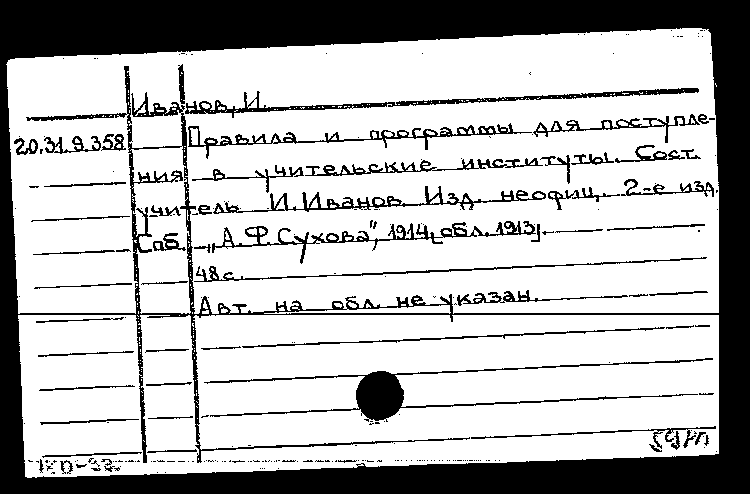 Иванов, И.
20.31.9.358 Правила и программы для поступле-
ния в учительские институты. Сост.
учитель И. Иванов. Изд. неофиц. 2-е изд.
Спб. „А. Ф. Сухова", 1914 [обл. 1913].
48 с.
Авт. на обл. не указан.